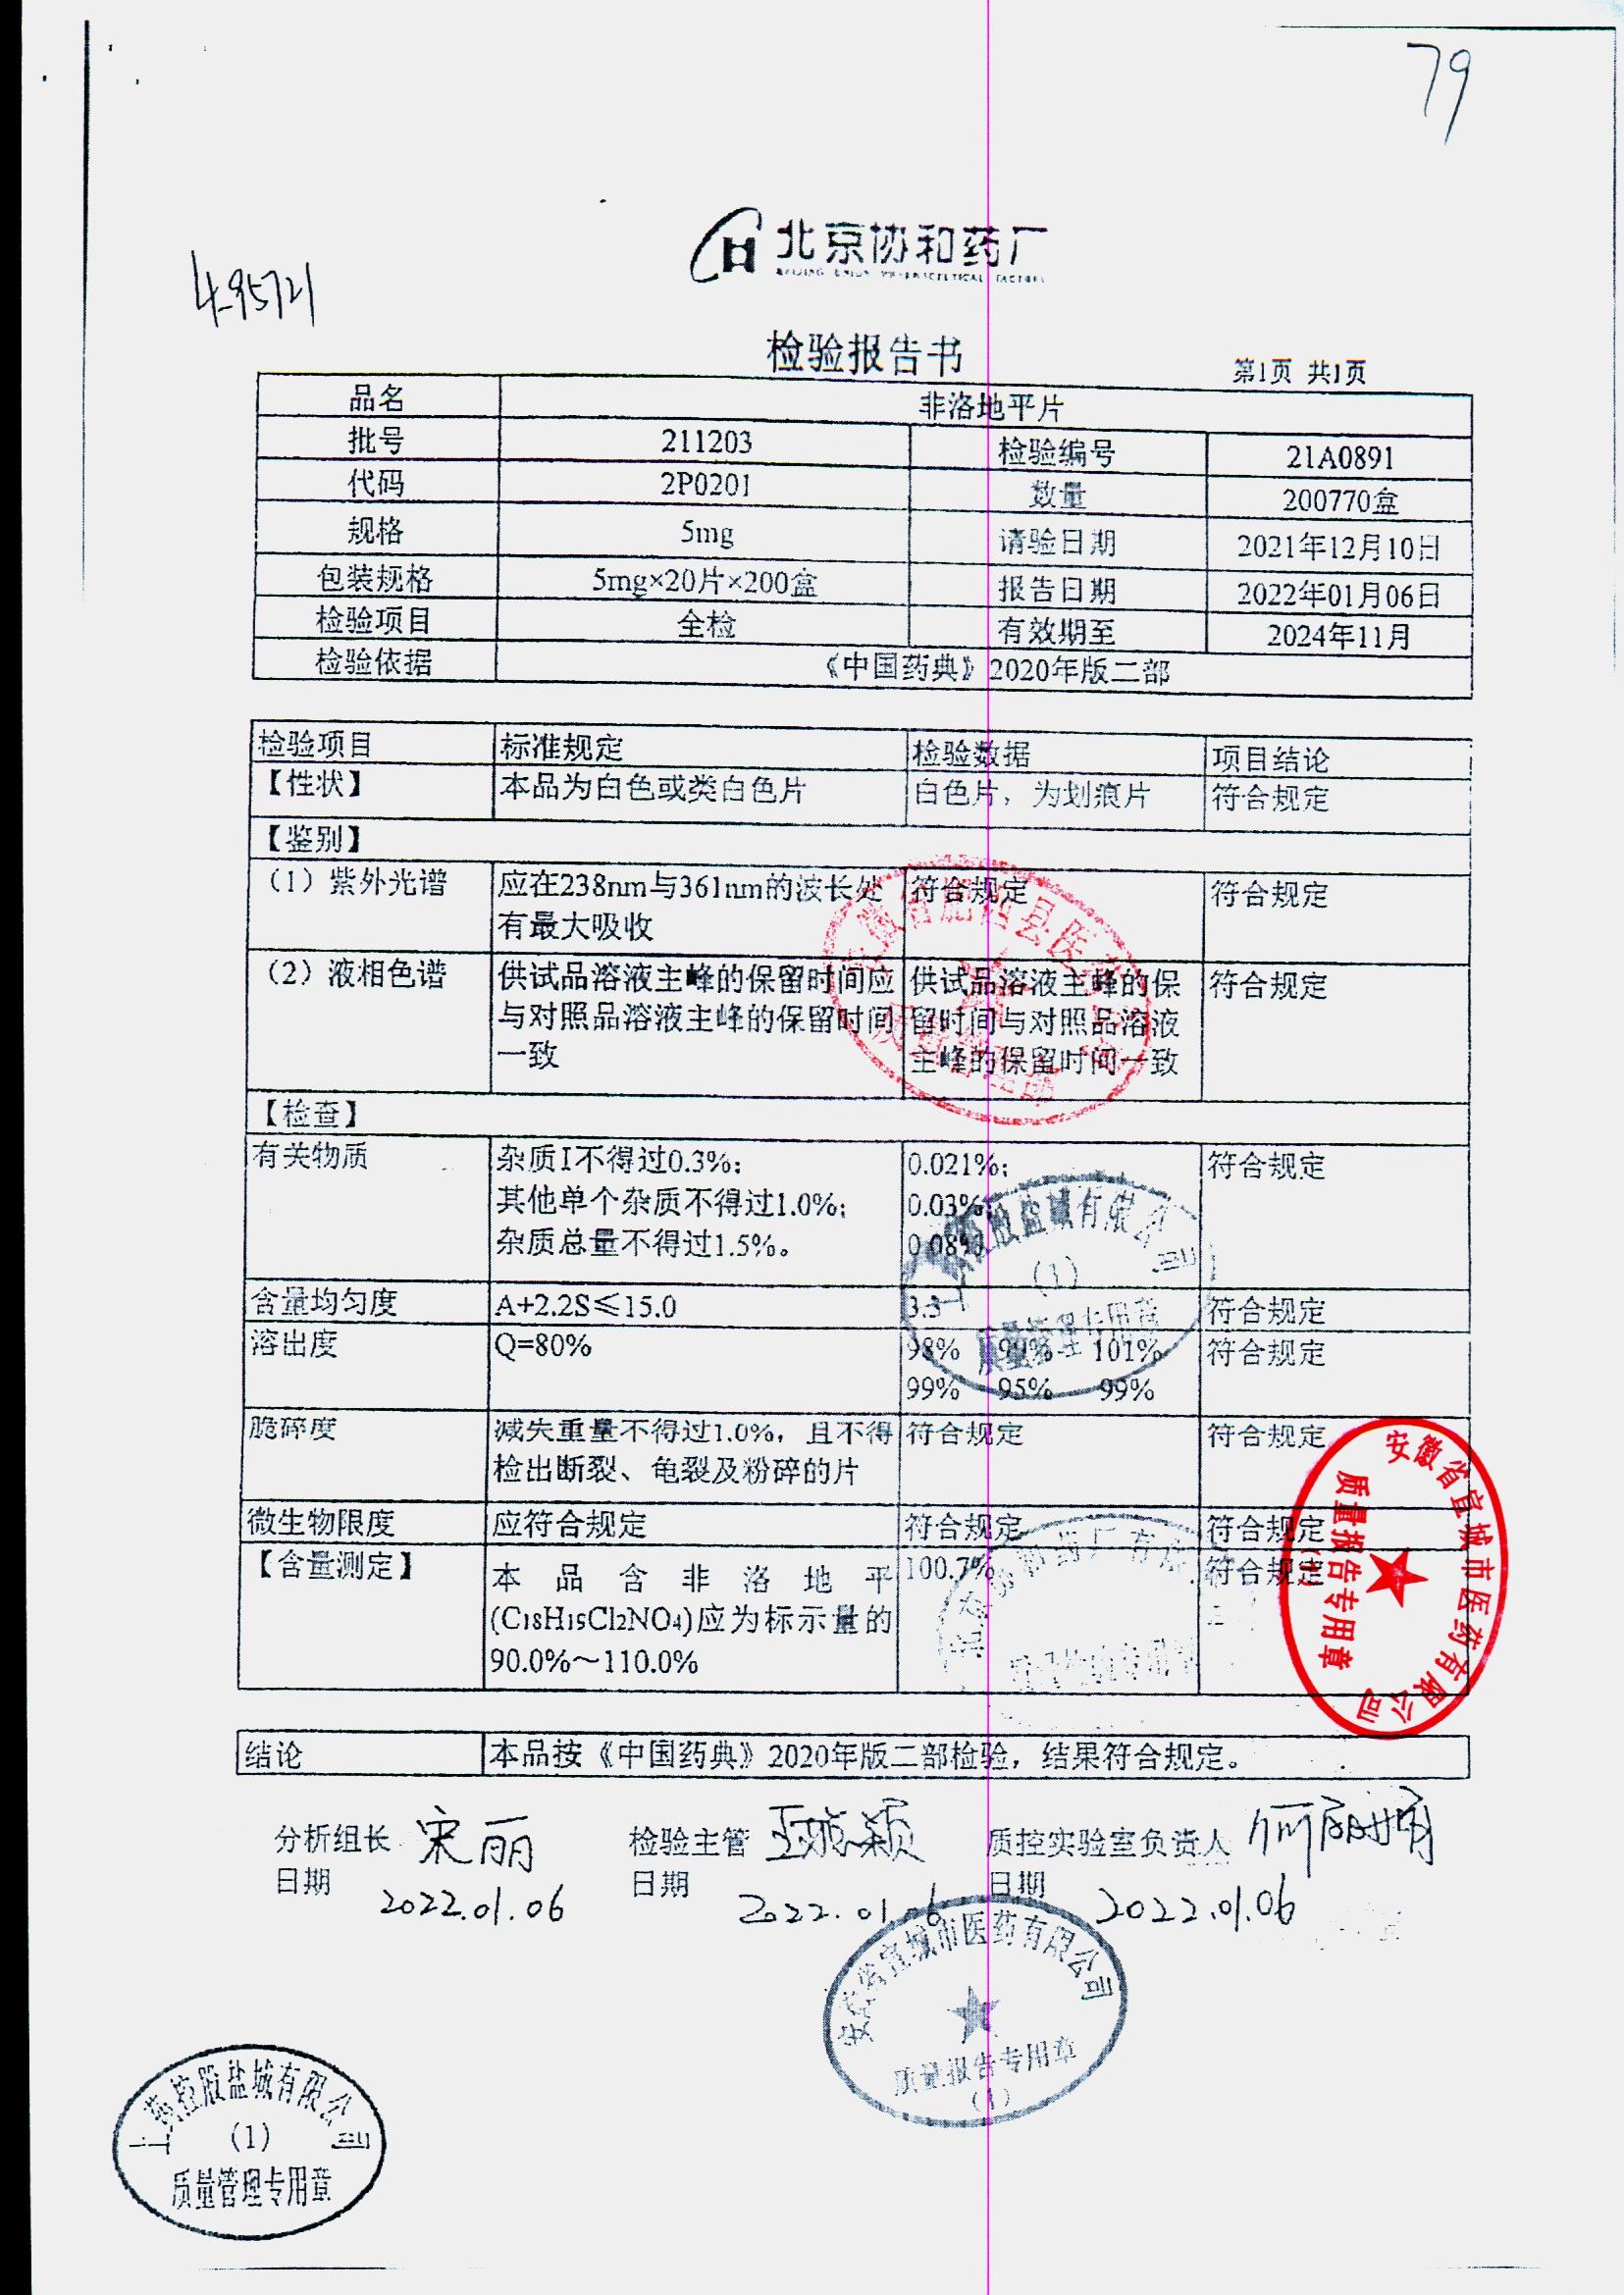 79
北京协和药厂
BEIJING UNION PHARMACEUTICAL FACTORY
495721
检验报告书
第1页 共1页
品名 非洛地平片
批号 211203 检验编号 21A0891
代码 2P0201 数量 200770盒
规格 5mg 请验日期 2021年12月10日
包装规格 5mg×20片×200盒 报告日期 2022年01月06日
检验项目 全检 有效期至 2024年11月
检验依据 《中国药典》2020年版二部
检验项目 标准规定 检验数据 项目结论
【性状】 本品为白色或类白色片 白色片，为划痕片 符合规定
【鉴别】
（1）紫外光谱 应在238nm与361nm的波长处 符合规定 符合规定
有最大吸收
（2）液相色谱 供试品溶液主峰的保留时间应 供试品溶液主峰的保 符合规定
与对照品溶液主峰的保留时间 留时间与对照品溶液
一致 主峰的保留时间一致
【检查】
有关物质 杂质I不得过0.3%； 0.021%； 符合规定
其他单个杂质不得过1.0%； 0.03%；
杂质总量不得过1.5%。 0.08%
含量均匀度 A+2.2S≤15.0 3.3 符合规定
溶出度 Q=80% 98% 99% 101% 符合规定
99% 95% 99%
脆碎度 减失重量不得过1.0%，且不得 符合规定 符合规定
检出断裂、龟裂及粉碎的片
微生物限度 应符合规定 符合规定 符合规定
【含量测定】 本品含非洛地平 100.7% 符合规定
(C18H19Cl2NO4)应为标示量的
90.0%～110.0%
结论 本品按《中国药典》2020年版二部检验，结果符合规定。
分析组长 宋丽 检验主管 质控实验室负责人
日期 2022.01.06 日期 2022.01.06 日期 2022.01.06
安徽省宣城市医药有限公司
质量报告专用章
(1)
安徽省宣城市医药有限公司
质量报告专用章
(1)
上药控股盐城有限公司
(1)
质量管理专用章
上药控股盐城有限公司
(1)
质量管理专用章